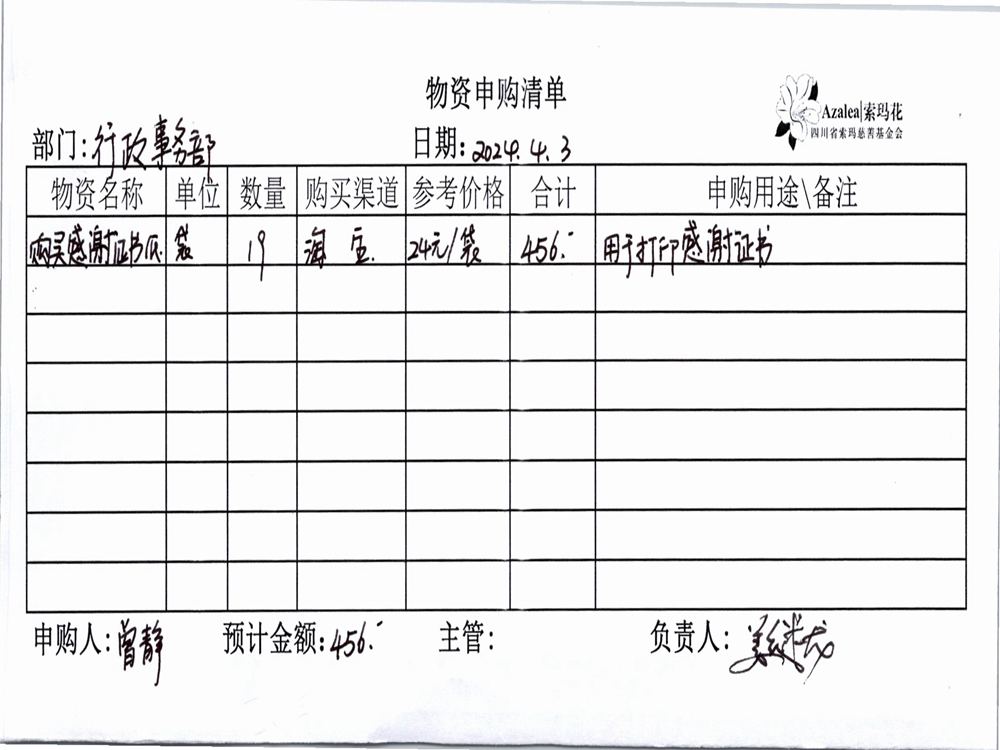 物资申购清单
Azalea|索玛花
四川省索玛慈善基金会
部门:行政事务部 日期:2024.4.3
物资名称 单位 数量 购买渠道 参考价格 合计 申购用途\备注
购买感谢证书纸 袋 19 淘宝 24元/袋 456.- 用于打印感谢证书
申购人:曾静 预计金额:456.- 主管: 负责人: